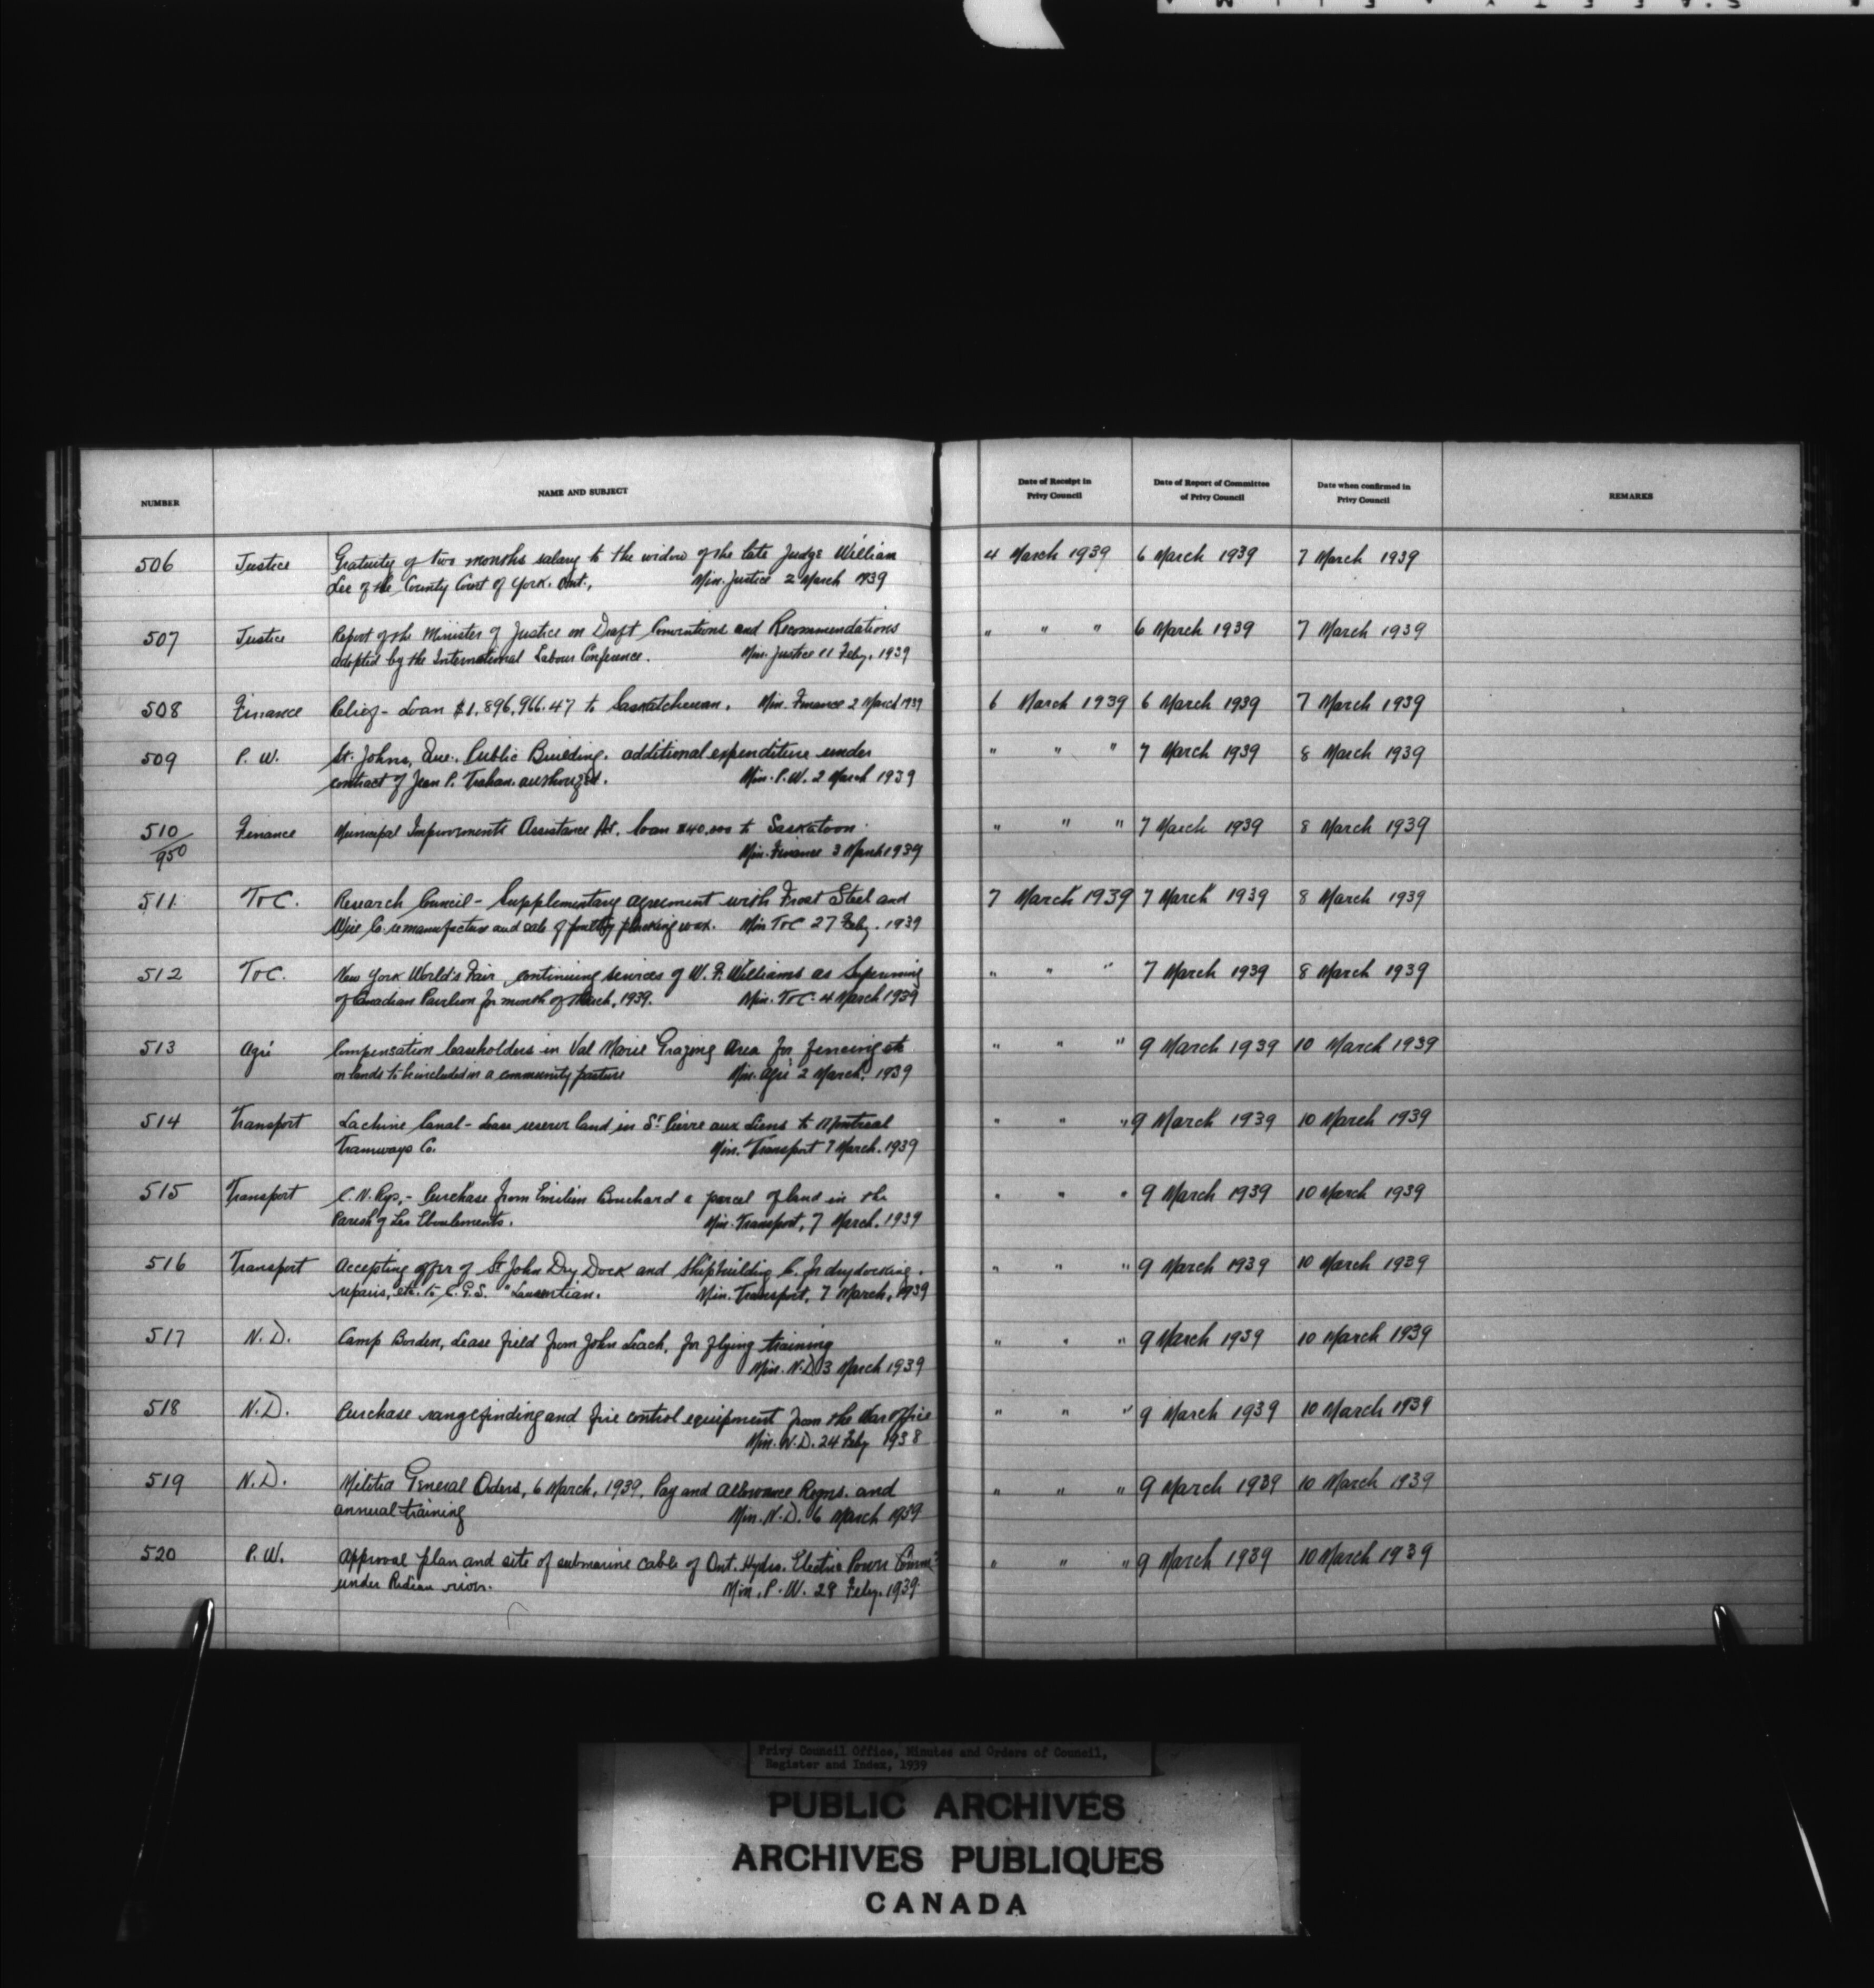 NUMBER NAME AND SUBJECT Date of Receipt in Privy Council Date of Report of Committee of Privy Council Date when confirmed in Privy Council REMARKS
506 Justice Gratuity of two months salary to the widow of the late Judge William 4 March 1939 6 March 1939 7 March 1939
Lee of the County Court of York. Ont., Min. Justice 2 March 1939
507 Justice Report of the Minister of Justice on Draft Conventions and Recommendations " " " 6 March 1939 7 March 1939
adopted by the International Labour Conference. Min. Justice 11 Feby. 1939
508 Finance Relief - Loan $1,896,966.47 to Saskatchewan. Min. Finance 2 March 1939 6 March 1939 6 March 1939 7 March 1939
509 P. W. St. Johns, Que., Public Building. additional expenditure under " " " 7 March 1939 8 March 1939
contract of Jean P. Trahan. authorized. Min. P.W. 2 March 1939
510/950 Finance Municipal Improvements Assistance Act. loan $40,000 to Saskatoon. " " " 7 March 1939 8 March 1939
Min. Finance 3 March 1939
511 T&C. Research Council - Supplementary agreement with Frost Steel and 7 March 1939 7 March 1939 8 March 1939
Wire Co. re manufacture and sale of poultry plucking wax. Min T&C 27 Feby. 1939
512 T&C. New York World's Fair continuing services of W. F. Williams as Supervising " " " 7 March 1939 8 March 1939
of Canadian Pavilion for month of March, 1939. Min. T&C. 4 March 1939
513 Agri Compensation leaseholders in Val Marie Grazing Area for fencing etc " " " 9 March 1939 10 March 1939
on lands to be included in a community pasture Min. Agri 2 March, 1939
514 Transport Lachine Canal - Lease reserve land in St. Pierre aux Liens to Montreal " " " 9 March 1939 10 March 1939
Tramways Co. Min. Transport 7 March. 1939
515 Transport C.N.Rys. - Purchase from Emilien Bouchard a parcel of land in the " " " 9 March 1939 10 March 1939
Parish of Les Eboulements. Min. Transport, 7 March. 1939
516 Transport Accepting offer of St John Dry Dock and Shipbuilding C. for drydocking. " " " 9 March 1939 10 March 1939
repairs, etc. to C.G.S. "Laurentian. Min. Transport, 7 March, 1939
517 N. D. Camp Borden, Lease field from John Leach, for flying training " " " 9 March 1939 10 March 1939
Min. N.D. 3 March 1939
518 N. D. Purchase rangefinding and fire control equipment from the War Office " " " 9 March 1939 10 March 1939
Min. N.D. 24 Feby 1938
519 N. D. Militia General Orders, 6 March, 1939, Pay and Allowance Regns. and " " " 9 March 1939 10 March 1939
annual training Min. N.D. 6 March 1939
520 P. W. Approval plan and site of submarine cable of Ont. Hydro. Electric Power Comm. " " " 9 March 1939 10 March 1939
under Rideau river. Min. P.W. 28 Feby. 1939
Privy Council Office, Minutes and Orders of Council,
Register and Index, 1939
PUBLIC ARCHIVES
ARCHIVES PUBLIQUES
CANADA